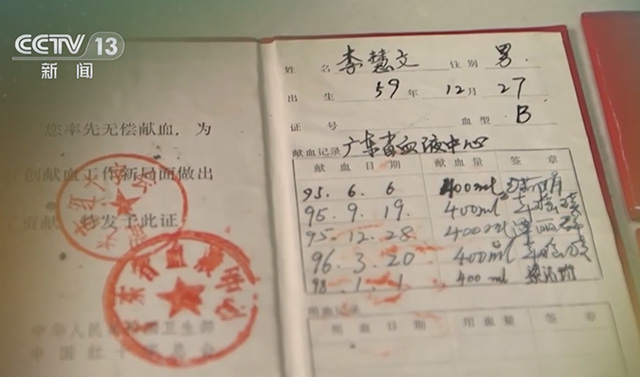 CCTV 13
新闻
您率先无偿献血，为
创献血工作新局面做出
贡献，特发了此证
中国红十字会总会
姓 名 李慧文 性别 男
出 生 59 年 12 月 27
证 号 血型 B
献血记录 广东省血液中心
献 血 日 期 献 血 量 签 章
95. 6. 6 400ml
95. 9. 19. 400ml
95. 12. 28 400ml
96. 3. 20 400ml
98. 1. 1 400 ml
用血记录
用 血 日 期 用 血 量 签 章